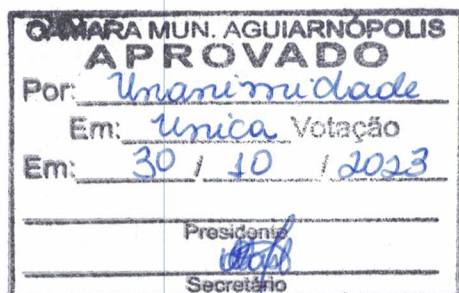 CÂMARA MUN. AGUIARNÓPOLIS
APROVADO
Por: Unanimidade
Em: Unica Votação
Em: 30 / 10 / 2023
Presidente
Secretário